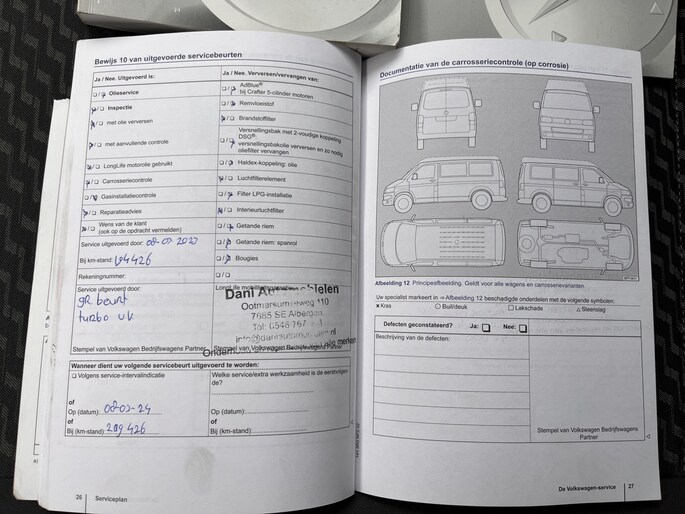 Bewijs 10 van uitgevoerde servicebeurten
Ja / Nee. Uitgevoerd is:
Olieservice
Inspectie
met olie verversen
met aanvullende controle
LongLife motorolie gebruikt
Carrosseriecontrole
Gasinstallatiecontrole
Reparatieadvies
Wens van de klant
(ook op de opdracht vermelden)
Service uitgevoerd door:
Bij km-stand:
Rekeningnummer:
Service uitgevoerd door:
gR beurt
turbo
Stempel van Volkswagen Bedrijfswagens Partner
Ja / Nee. Verversen/vervangen van:
AdBlue®
bij Crafter 5-cilinder motoren
Remvloeistof
Brandstoffilter
Versnellingsbak met 2-voudige koppeling
DSG®:
versnellingsbakolie verversen en zo nodig
oliefilter vervangen
Haldex-koppeling: olie
Luchtfilterelement
Filter LPG-installatie
Interieurluchtfilter
Getande riem
Getande riem: spanrol
Bougies
Dani
110
7665 SE Albergen
Tel: 0546
Stempel van Volkswagen Bedrijfswagens Partner
Wanneer dient uw volgende servicebeurt uitgevoerd te worden:
Volgens service-intervalindicatie
of
Op (datum):
of
Bij (km-stand): 209 426
Welke service/extra werkzaamheid is de eerstvolgen-
de?
Op (datum):
of
Bij (km-stand):
26 Serviceplan
Documentatie van de carrosseriecontrole (op corrosie)
Afbeelding 12 Principeafbeelding. Geldt voor alle wagens en carrosserievarianten.
Uw specialist markeert in ⇒ Afbeelding 12 beschadigde onderdelen met de volgende symbolen:
x Kras ○ Buil/deuk □ Lakschade △ Steenslag
Defecten geconstateerd? Ja: Nee:
Beschrijving van de defecten:
Stempel van Volkswagen Bedrijfswagens
Partner
De Volkswagen-service 27